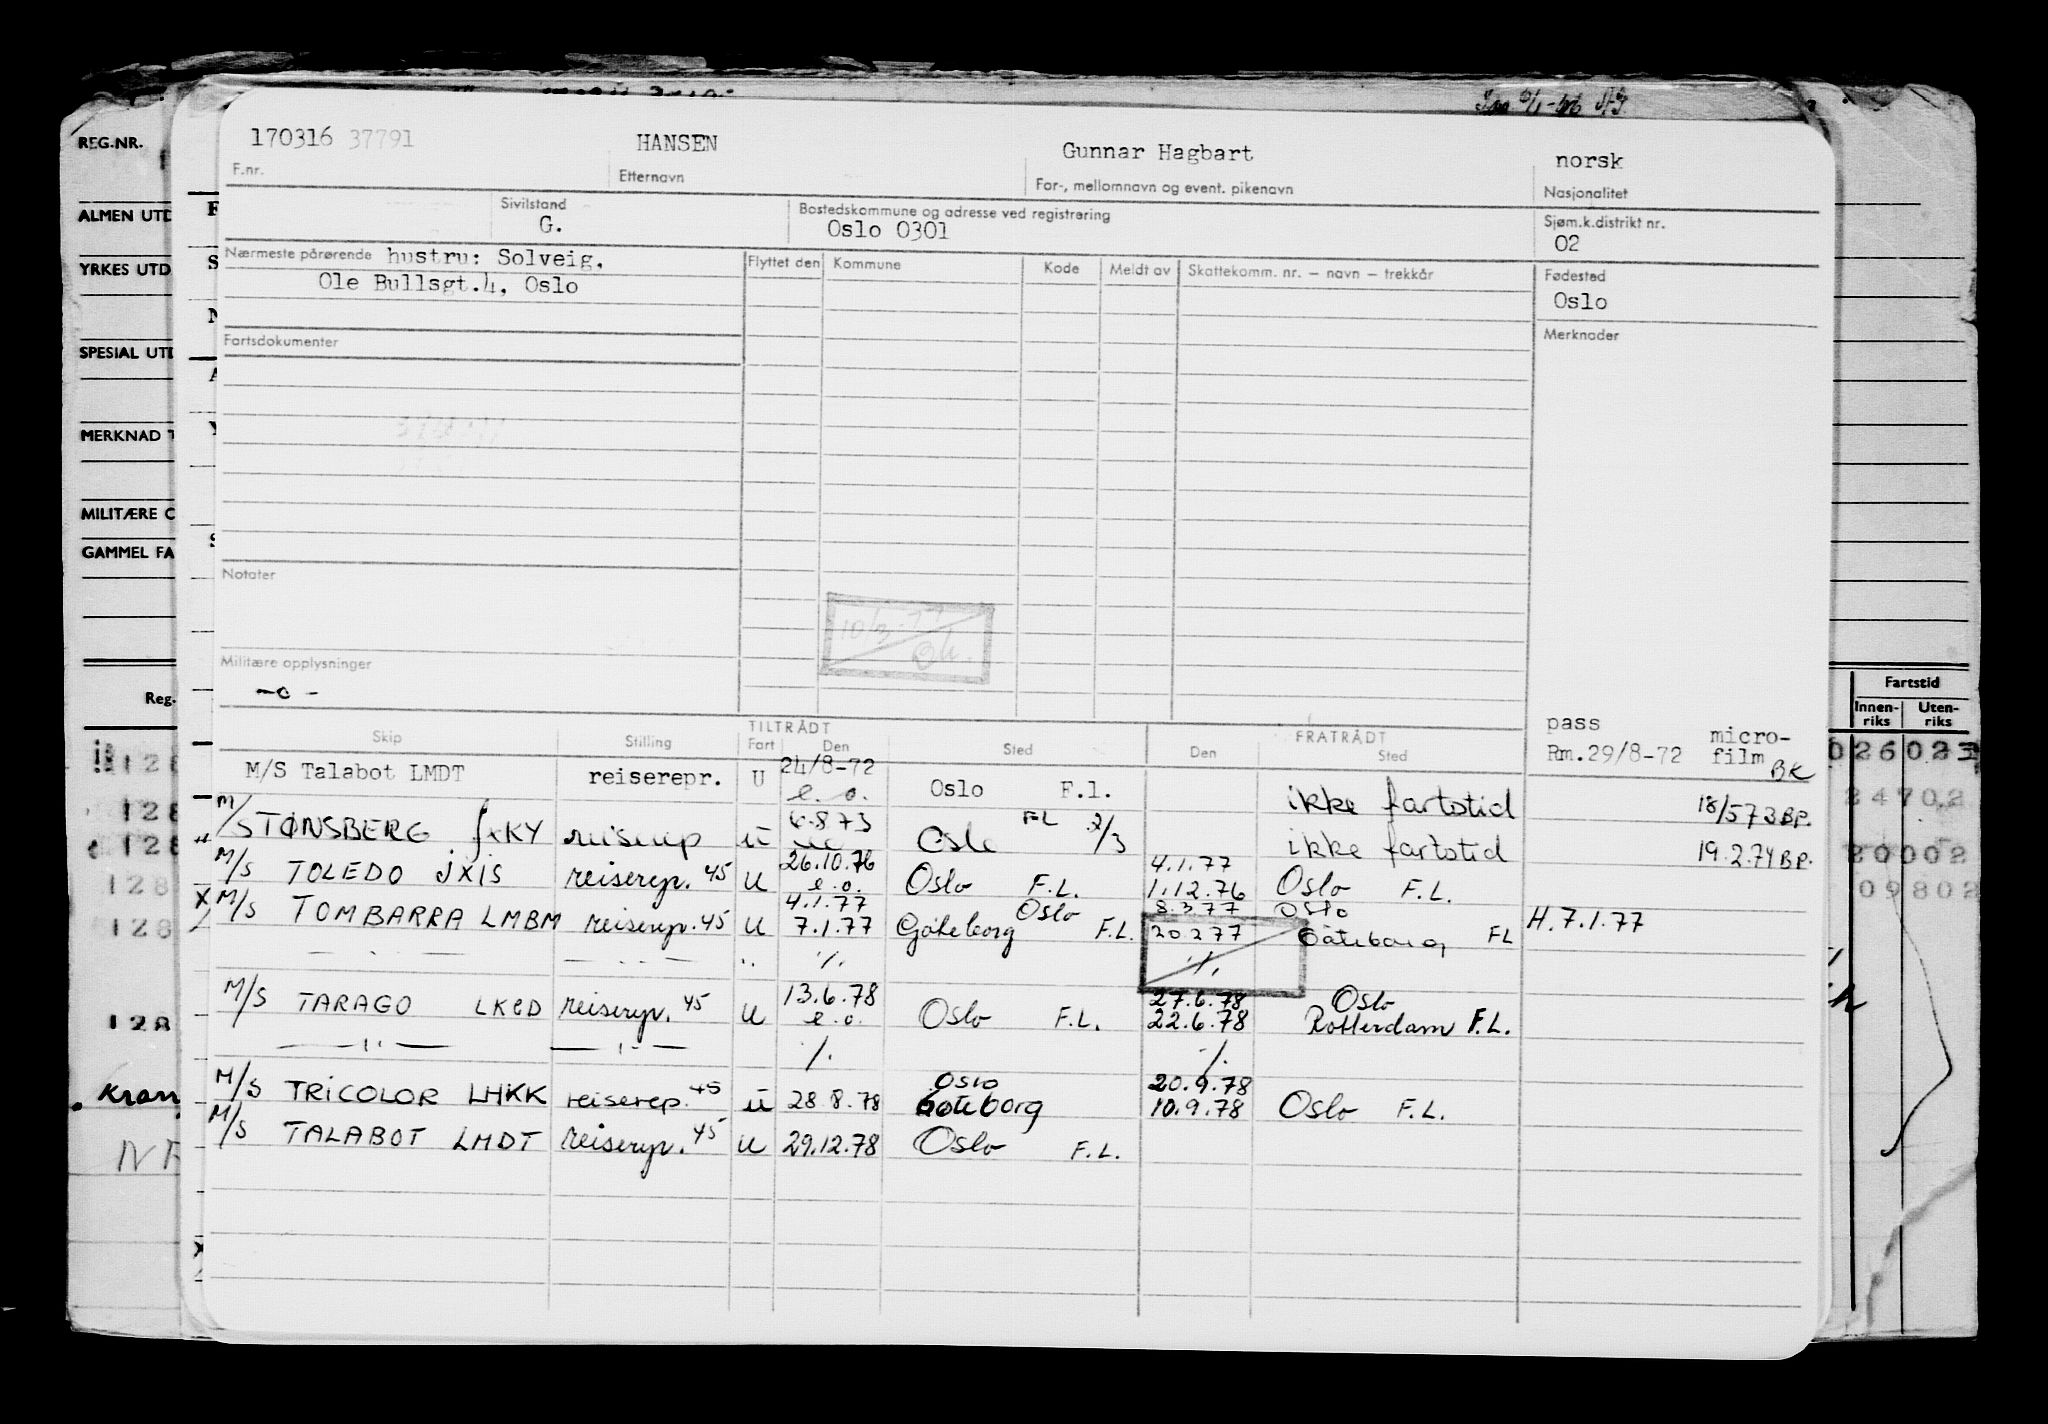 REG.NR.
170316 37791 HANSEN Gunnar Hagbart norsk
F.nr. Etternavn For-, mellomnavn og event. pikenavn Nasjonalitet
ALMEN UTD
Sivilstand Bostedskommune og adresse ved registrering Sjøm.k.distrikt nr.
G. Oslo 0301 02
YRKES UTD
Nærmeste pårørende hustru: Solveig, Flyttet den Kommune Kode Meldt av Skattekomm. nr. – navn – trekkår Fødested
Ole Bullsgt.4, Oslo Oslo
SPESIAL UTD
Fartsdokumenter Merknader
MERKNAD T
MILITÆRE O
GAMMEL FA
Notater
10/3-77
Militære opplysninger
-o-
Fartstid
Reg. Innen-riks Uten-riks
pass micro-
Rm.29/8-72 film BK
TILTRÅDT FRATRÅDT
Skip Stilling Fart Den Sted Den Sted
M/S Talabot LMDT reiserepr. U 24/8-72 e.o. Oslo F.l. ikke fartstid 18/5 73 BP.
M/S TØNSBERG JXKY reiserep U 6.8 73 Oslo FL 2/3 ikke fartstid 19.2.74 BP.
M/S TOLEDO JXIS reiserep. 45 U 26.10.76 e.o. Oslo F.L. 4.1.77 1.12.76 Oslo F.L.
X M/S TOMBARRA LMBM reiserep. 45 U 4.1.77 7.1.77 Oslo Göteborg F.L. 8.3.77 20.2 77 Oslo Göteborg FL H. 7.1.77
— " — — " — " ./. ./.
M/S TARAGO LKCD reiserep. 45 U 13.6.78 e.o. Oslo F.L. 27.6.78 22.6.78 Oslo Rotterdam F.L.
— " — — " — ./. ./.
M/S TRICOLOR LHKK reiserep. 45 U 28.8.78 Oslo Göteborg 20.9.78 10.9.78 Oslo F.L.
M/S TALABOT LMDT reiserep. 45 U 29.12.78 Oslo F.L.